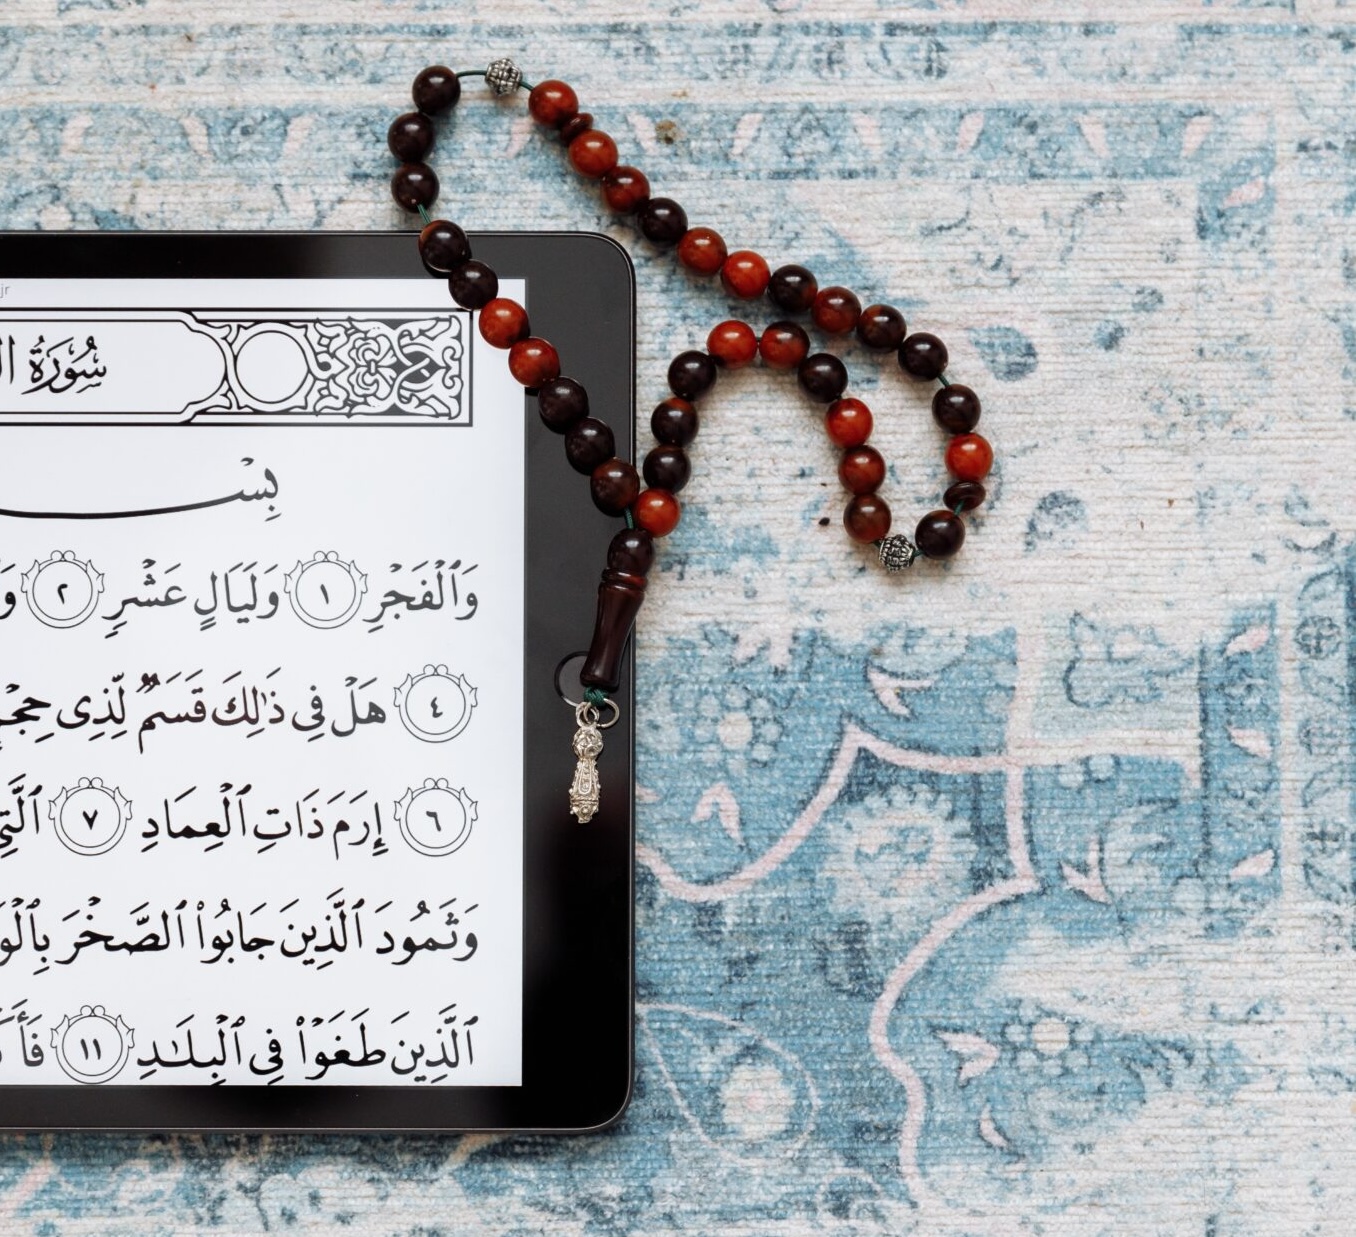 jr
سُورَةُ
بِسْ
وَٱلْفَجْرِ ١ وَلَيَالٍ عَشْرٍ ٢
٤ هَلْ فِى ذَٰلِكَ قَسَمٌ لِّذِى حِجْرٍ
٦ إِرَمَ ذَاتِ ٱلْعِمَادِ ٧ ٱلَّتِى
وَثَمُودَ ٱلَّذِينَ جَابُوا۟ ٱلصَّخْرَ
ٱلَّذِينَ طَغَوْا۟ فِى ٱلْبِلَـٰدِ ١١